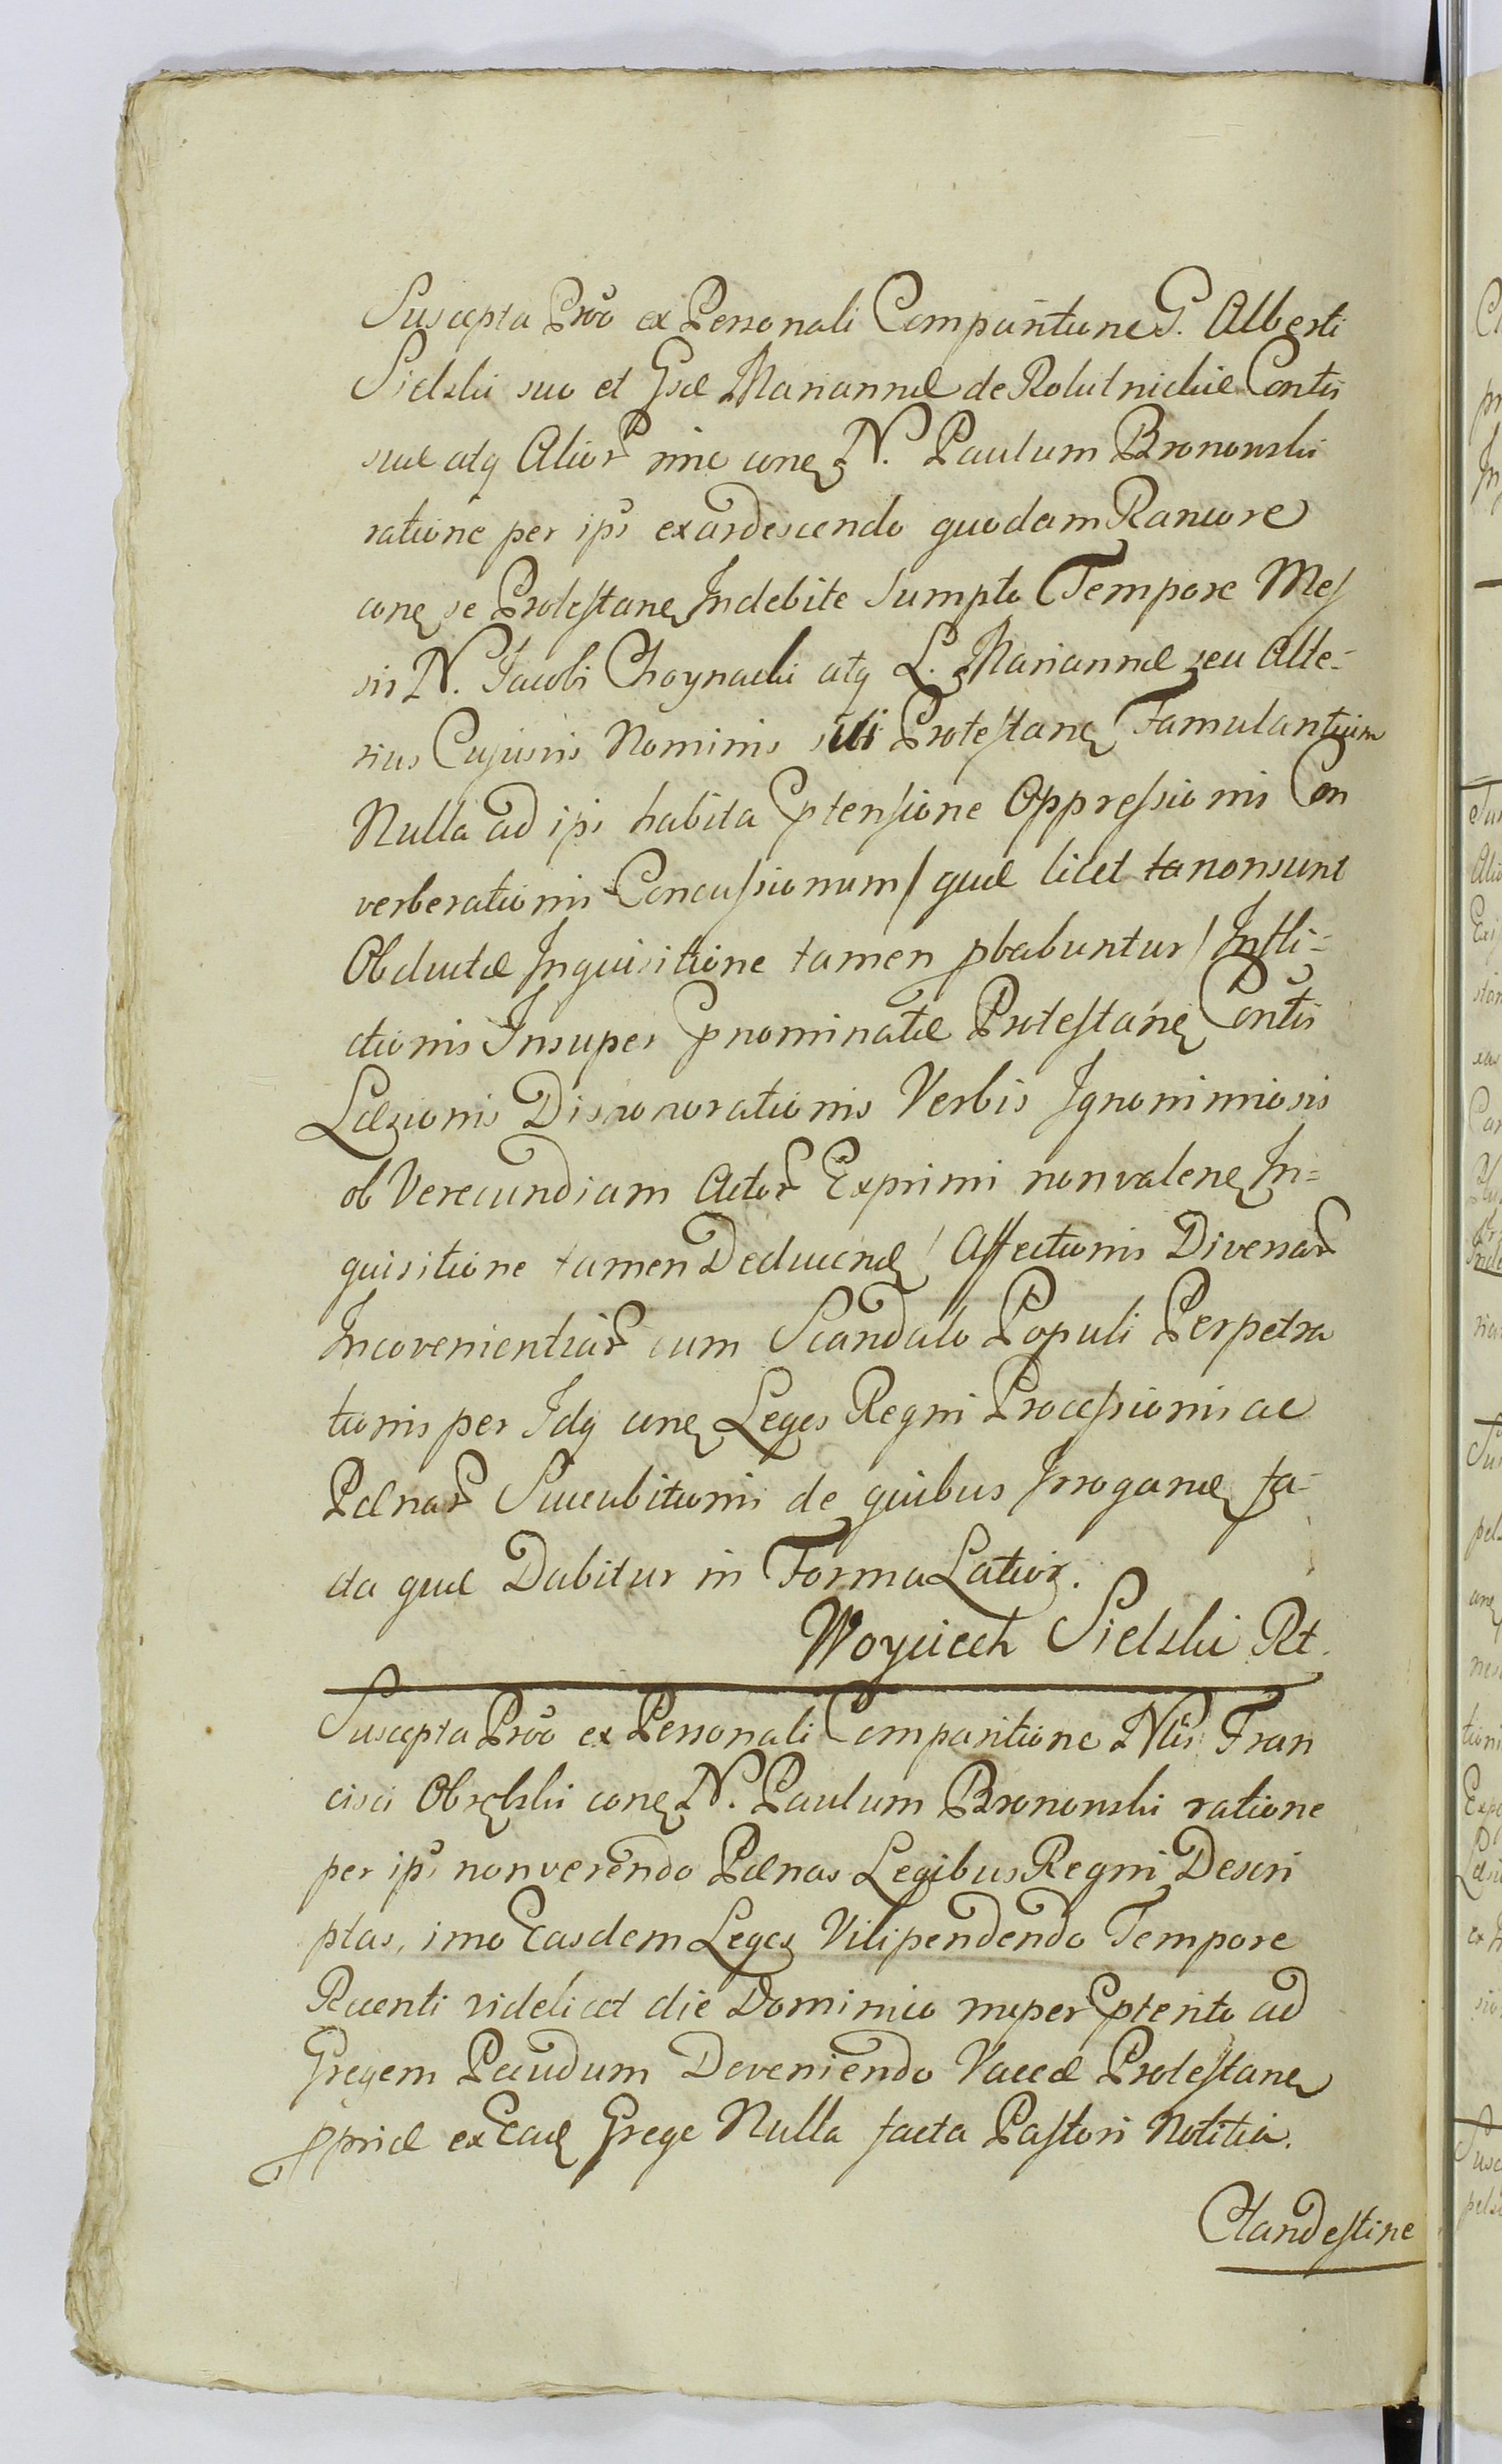 Suscepta Prõo ex Personali Comparitione G. Alberti
Sielski suo et Gsæ Mariannæ de Rolulnickie Contis
suæ atq Alior nne cone N. Paulum Bronowski
ratione per ips exardescendo quodam Rancore
cone se Protestane Indebite sumpto Tempore Mes
sis N. Jacobi Choynacki atq L. Mariannæ seu Alte-
rius Cujusvis Nominis sibi Protestane Famulantium
Nulla ad ips habita ptensione Oppressionis Con
verberationis Concussionum / quæ licet ta non sunt
Obductæ Inquisitione tamen pbabuntur / Infli-
ctionis Insuper pnominatæ Protestane Contis
Læsionis Dishonorationis Verbis Ignominiosis
ob Verecundiam Actor Exprimi non valene In-
quisitione tamen Deducend / Affectionis Diversar
Incovenientiar cum Scandalo Populi Perpetra
tionis per Idq cone Leges Regni Processionis ac
Pænar Succubitionis de quibus Irrogand fa-
cta quæ Dabitur in Forma Latior.
Woyciech Sielski Rt.
Suscepta Prõo ex Personali Comparitione Nlis Fran
cisci Obrębski cone N. Paulum Bronowski ratione
per ips non verendo Pænas Legibus Regni Descri
ptas, imo Easdem Leges Vilipendendo Tempore
Recenti videlicet die Dominico nuper pterito ad
Gregem Pecudum Deveniendo Vaccæ Protestane
ppriæ ex Ead Grege Nulla facta Pastori Notitia.
Clandestine